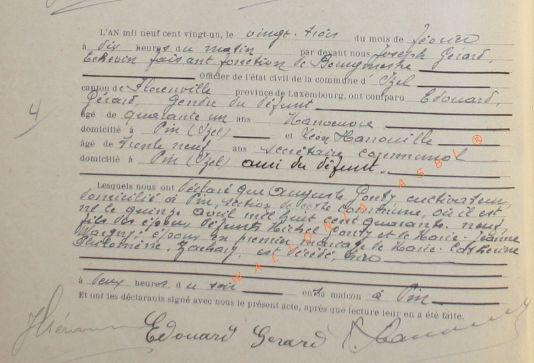 L'AN mil neuf cent vingt-un, le vingt-trois du mois de février
à dix heures du matin par devant nous Joseph Gérard,
Echevin faisant fonction de Bourgmestre
officier de l'état civil de la commune d'Izel
canton de Florenville province de Luxembourg, ont comparu Edouard
4 Gérard, Gendre du défunt
âgé de quarante un ans
domicilié à Pin (Izel) et Léon Hanouille
âgé de trente neuf ans secrétaire communal
domicilié à Pin (Izel) ami du défunt.
Lesquels nous ont déclaré que Auguste cultivateur,
domicilié à Pin, section de cette commune, où il est
né le quinze août mil huit cent quarante neuf,
fils des époux défunts Michel et de Marie-Jeanne
époux en premier mariage de Marie-Catherine
est décédé, hier
à deux heures du soir en sa maison à Pin
Et ont les déclarants signé avec nous le présent acte, après que lecture leur en a été faite.
Edouard Gerard
WALLONIA ASBL ®